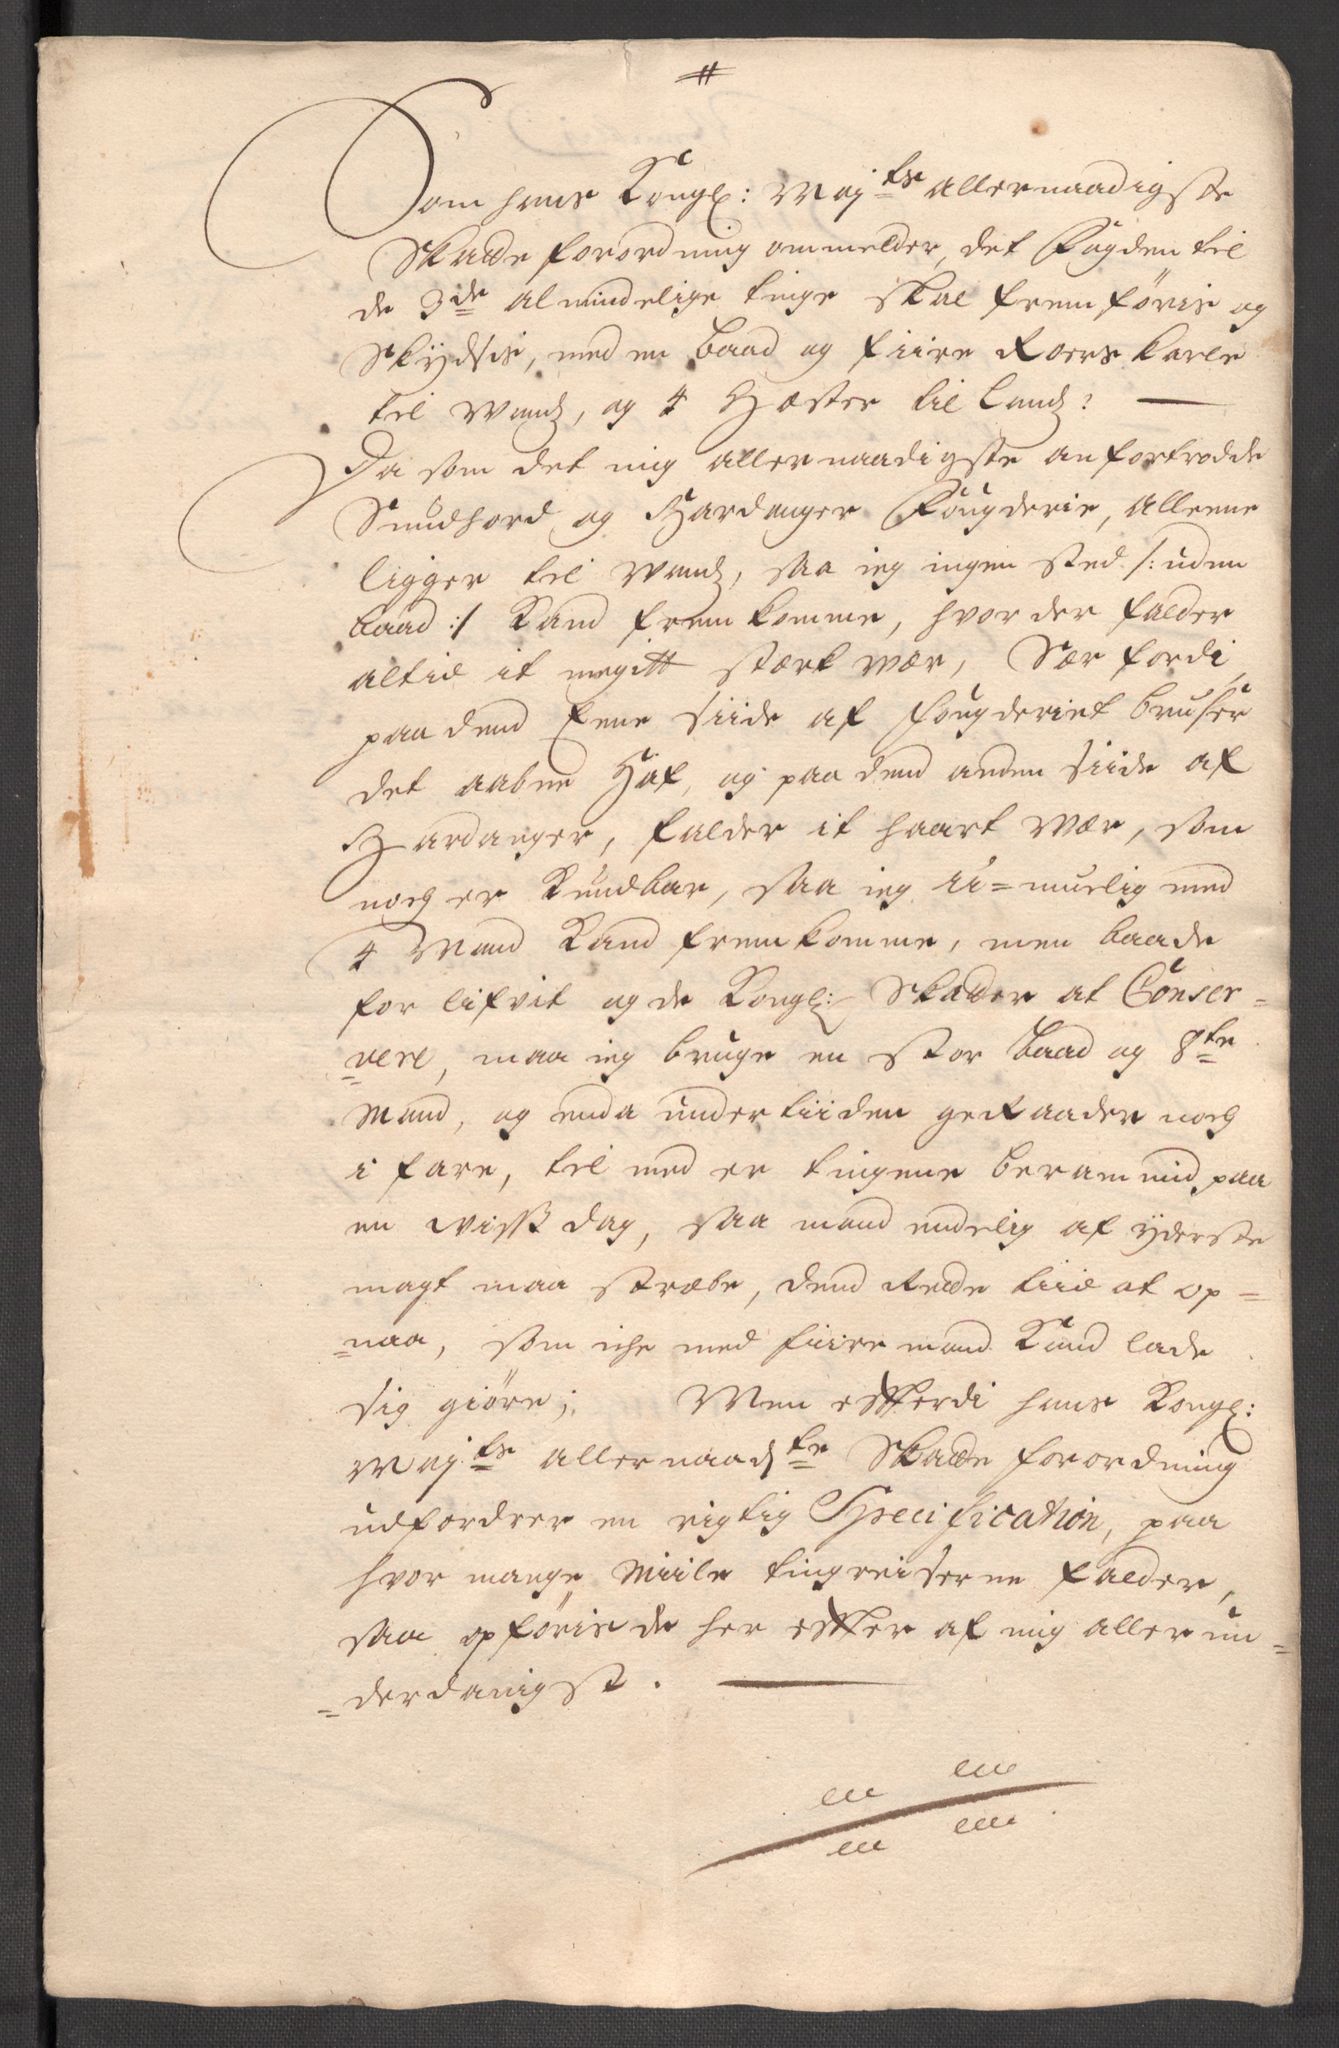 #
Som hans Kongl: Maj.ts allernaadigste
Skatte forordning ommelder, det Fogden til
de 3de almindelige tinge skal fremføris og
Skÿdsis, med en baad og fiire Roers karle
til wands, og 4 Hæster til Lands: —
Da som det mig allernaadigste anfortrodde
Sundhord og Hardanger Fougderie, alleene
ligger til wands, saa ieg ingen sted /: uden
baad :/ Kand fremkomme, hvor der falder
altid it megitt stærk wær, Sær fordi
paa dend Eene siide af fougderiet bruser
det aabne Haf, og paa dend anden siide af
Hardanger, falder it haart wær, som
nock er Kundbar, saa ieg u=muelig med
4 Mand Kand fremkomme, men baade
for lifvit og de Kongl: Skatter at Conser=
=vere, maa ieg bruge en stor baad og 8te
Mand, og enda undertiiden geraader nock
i fare, til med er tingene berammid paa
en wiss dag, saa mand endelig af ÿderste
magt maa stræbe, dend rette tiid at op=
=naa, som iche med fiire mand Kand lade
sig giøre; Men efterdi hans Kongl:
Maj.ts allernaads.te Skatte forordning
udfordrer en rigtig Specification, paa
hvor mange Miile tingreiserne falder,
saa opføris de her efter af mig allerun=
=derdanigst. —